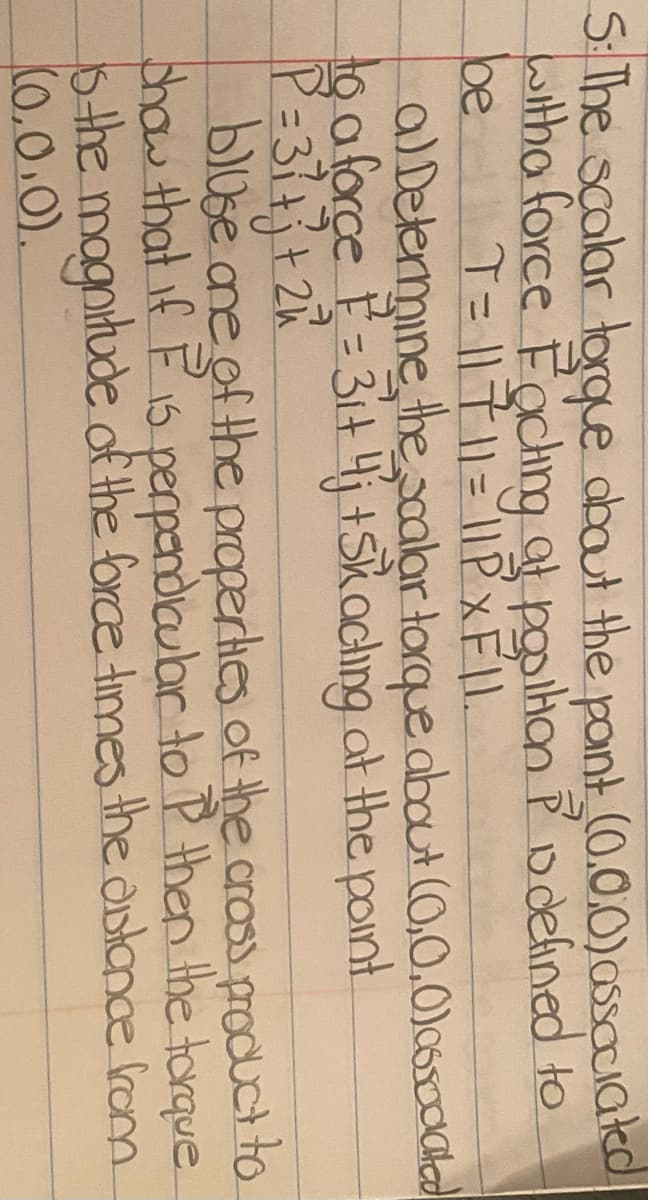 5: The scalar torque about the point (0,0,0) associated
with a force F⃗ acting at position P⃗ is defined to
be T = ||T⃗|| = ||P⃗ x F⃗||.
a) Determine the scalar torque about (0,0,0) associated
to a force F⃗ = 3i⃗ + 4j⃗ + 5k⃗ acting at the point
P⃗ = 3i⃗ + j⃗ + 2k⃗
b) Use one of the properties of the cross product to
show that if F⃗ is perpendicular to P⃗ then the torque
is the magnitude of the force times the distance from
(0,0,0).